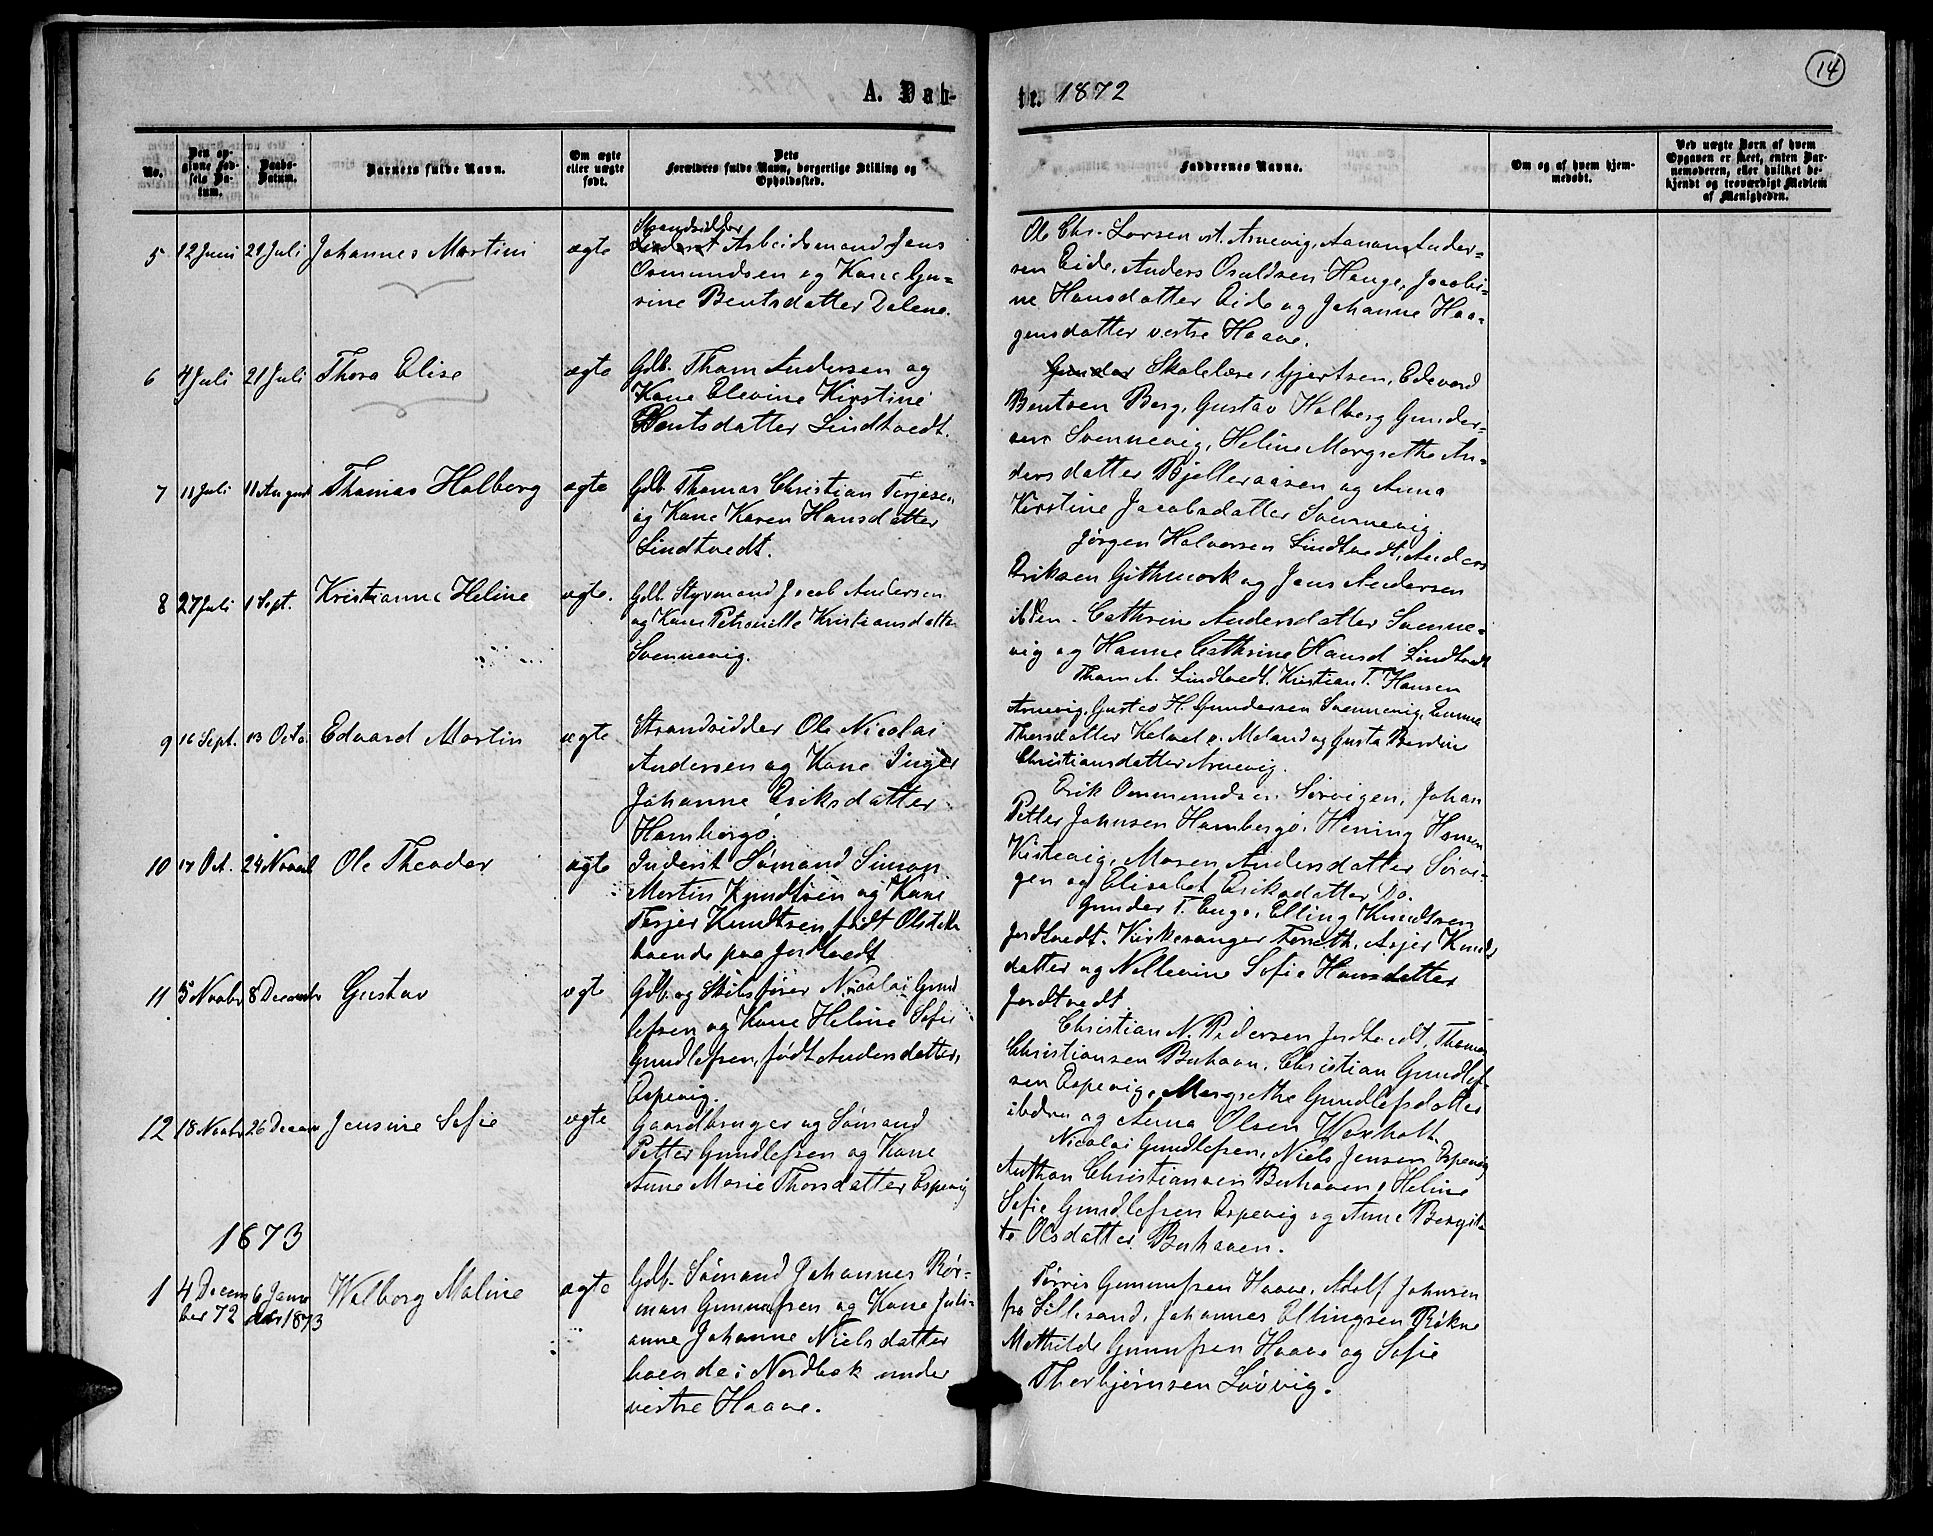 14
A. Daab-
te. 1872
No.
Den op-
givne Fød-
sels Da-
tum.
Daabs-
Datum.
Barnets fulde Navn.
Om ægte
eller uægte
født.
Dets
Forældres fulde Navn, borgerlige Stilling og
Opholdssted.
Faddernes Navne.
Om og af hvem hjem-
medøbt.
Ved uægte Børn af hvem
Opgaven er skeet, enten Bar-
nemoderen, eller hvilket be-
kjendt og troværdigt Medlem
af Menigheden.
5 12 Juni 21 Juli Johannes Martin ægte
Strandsidder
Inderst Arbeidsmand Jens
Osmundsen og Kone Gu-
rine Bentsdatter Dalene.
Ole Chr. Larsen vt. Arnevig, Aanon Ander-
sen Eide, Anders Osuldsen Hauge, Jacobi-
ne Hansdatter Eide og Johanne Haa-
gensdatter vestre Haave.
6 4 Juli 21 Juli Thora Elise ægte
Gdb. Tham Andersen og
Kone Elevine Kirstine
Bentsdatter Lindtvedt.
Gunder Skolelære, Gjertsen, Edevard
Bentsen Berg, Gustav Holberg Gunder-
sen Svennevig, Heline Margrethe An-
dersdatter Bjelleraasen og Anna
Kirstine Jacobsdatter Svennevig.
7 11 Juli 11 August Thomas Holberg ægte
Gdb. Thomas Christian Terjesen
og Kone Karen Hansdatter
Lindtvedt.
Jørgen Halvorsen Lindtvedt, Anders
Eriksen Githmark og Jens Andersen
ibden. Cathrine Andersdatter Svenne-
vig og Hanne Cathrine Hansd. Lindtvedt
8 27 Juli 1 Sept. Kristianne Heline ægte.
Gdb. Styrmand Jacob Andersen
og Kone Petronille Kristiansdatter
Svennevig.
Tham A. Lindtvedt. Kristian T. Hansen
Arnevig, Gustav H. Gundersen Svennevig, Emma
Thorsdatter Kalvel v. Moland og Gusta Berdine
Christiansdatter Arnevig.
9 16 Sept. 13 Octo. Edvard Martin ægte
Strandsidder Ole Nicolai
Andersen og Kone Inger
Johanne Eriksdatter
Hambergø.
Erik Ommundsen Sørvigen, Johan
Petter Johnsen Hambergø, Hening Hansen
Kistevig, Maren Andersdatter Sørvi-
gen og Elisabet Eriksdatter Do.
10 17 Oct. 24 Novembr Ole Theodor ægte
Inderst Sømand Simon
Martin Knudtsen og Kone
Terjer Knudtsen, født Olsdatter
boende paa Jordtvedt
Gunder T. Enge, Elling Knudtsen
Jordtvedt. Kirkesanger Tometh, Asjer Knuds
datter og Nellevine Sofie Hansdatter
Jordtvedt
11 5 Novbr 8 Decembr Gustav ægte
Gdb. og Skibsfører Nicolai Gund
lefsen og Kone Heline Sofie
Gundlefsen, født Andersdatter,
Espevig.
Christian N. Pedersen Jordtvedt, Thomas
Christiansen Buhaven, Christian Gundlef-
sen Espevig, Margrethe Gundlefsdatter
ibden og Anna Olsen Waxholt.
12 18 Novbr 26 Decem Jensine Sofie ægte
Gaardbruger og Sømand
Petter Gundlefsen og Kone
Anne Marie Thorsdatter Espevig
Nicolai Gundlefsen, Niels Jensen Espevig
Anthon Christiansen Buhaven, Heline
Sofie Gundlefsen Espevig og Anne Bergit-
te Olsdatter Buhaven.
1873
1 4 Decem
ber 72 6 Janu
ar 1873 Walborg Maline ægte
Gdb. Sømand Johannes Rør-
man Gunnufsen og Kone Juli-
anne Johanne Nielsdatter
boende i Nordbæk under
vestre Haave.
Tørris Gunnufsen Haave, Adolf Johnsen
fra Lillesand, Johannes Ellingsen Røkne
Mathilde Gunnufsen Haave og Sofie
Thorbjørnsen Løvvig.